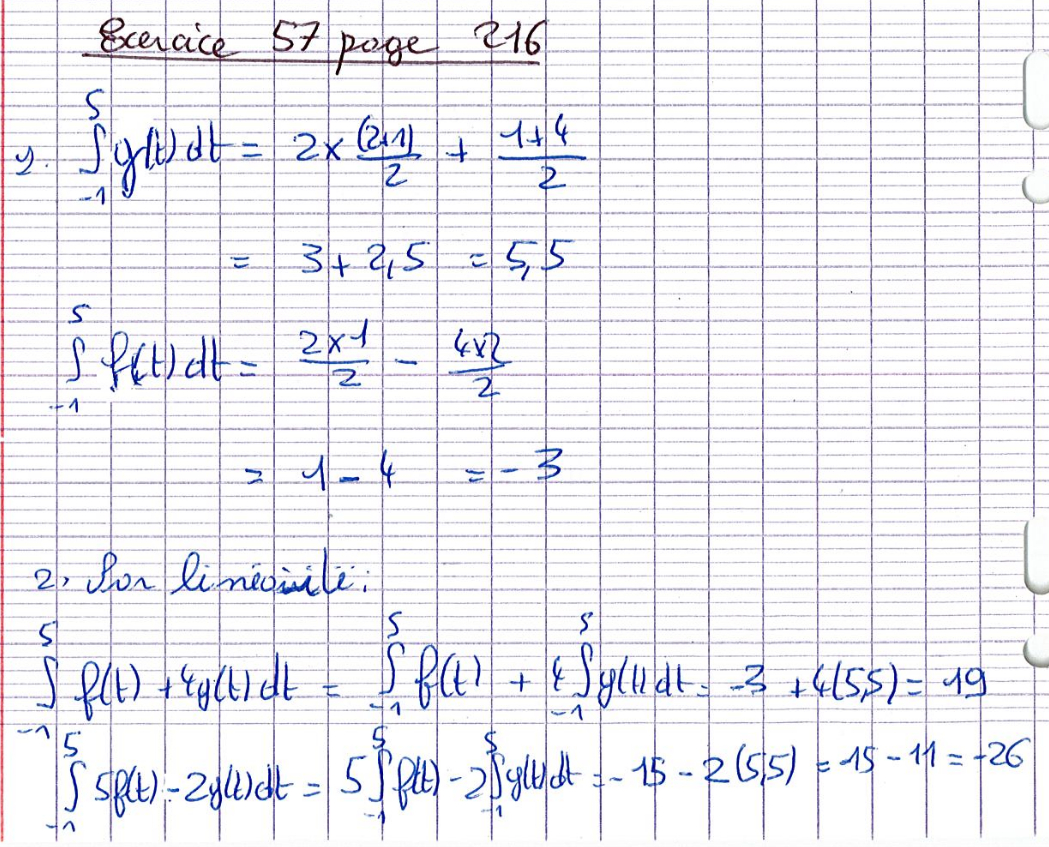 Exercice 57 page 216
1. ∫₋₁⁵ g(t) dt = 2 × (2+1)/2 + (1+4)/2
= 3 + 2,5 = 5,5
∫₋₁⁵ f(t) dt = (2×1)/2 - (4×2)/2
= 1 - 4 = -3
2. Par linéarité:
∫₋₁⁵ f(t) + 4g(t) dt = ∫₋₁⁵ f(t) + 4∫₋₁⁵ g(t) dt = -3 + 4(5,5) = 19
∫₋₁⁵ 5f(t) - 2g(t) dt = 5∫₋₁⁵ f(t) - 2∫₋₁⁵ g(t) dt = -15 - 2(5,5) = -15 - 11 = -26